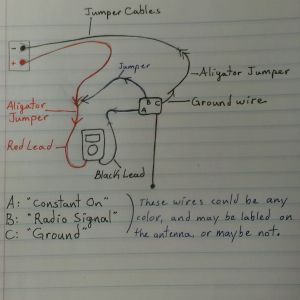 Jumper Cables
-
+
Jumper
Aligator Jumper
B C
A
Ground wire
Aligator
Jumper
Red Lead
Black Lead
A: "Constant On"
B: "Radio Signal"
C: "Ground"
These wires could be any
color, and may be labled on
the antenna, or maybe not.